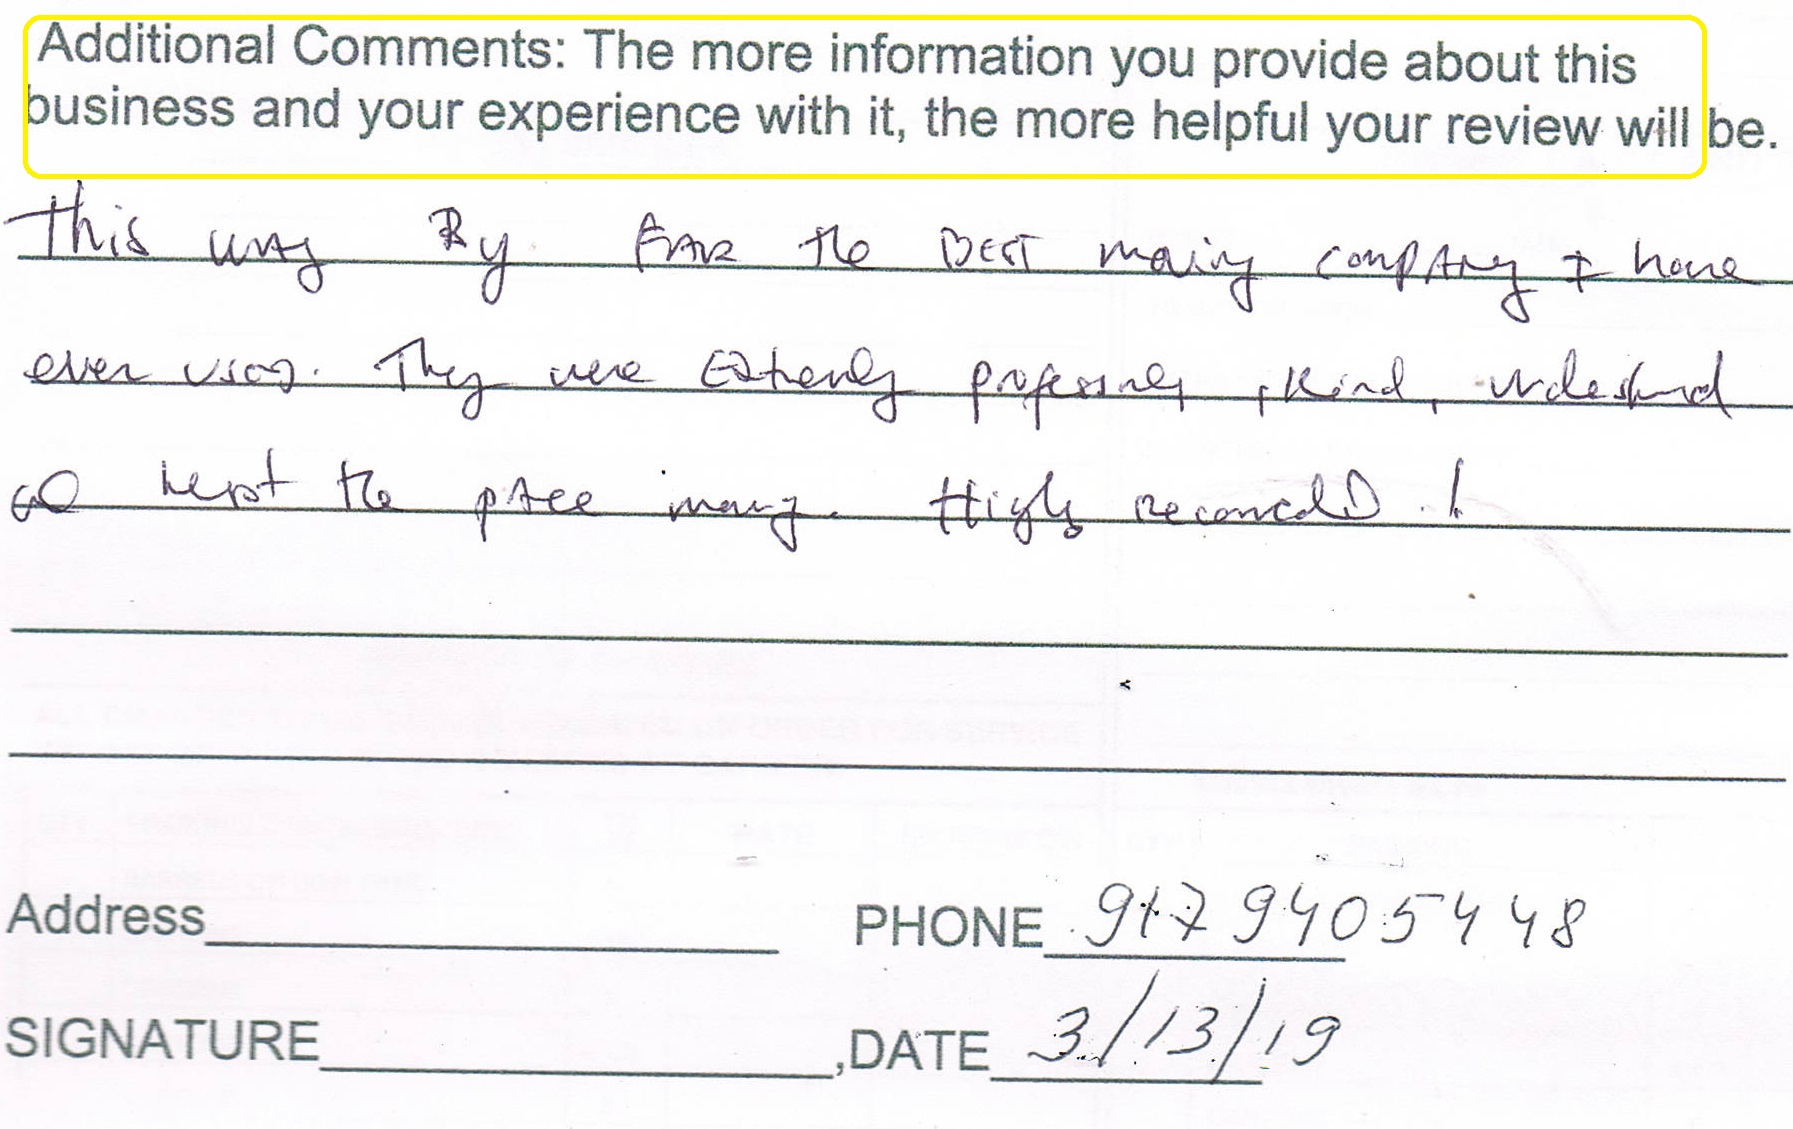 Additional Comments: The more information you provide about this
business and your experience with it, the more helpful your review will be.
This was By FAR the BEST moving company I have
ever used. They were Extremely professional, kind, understand
kept the pace moving. Highly recommended!
Address PHONE 917 940 5448
SIGNATURE ,DATE 3/13/19